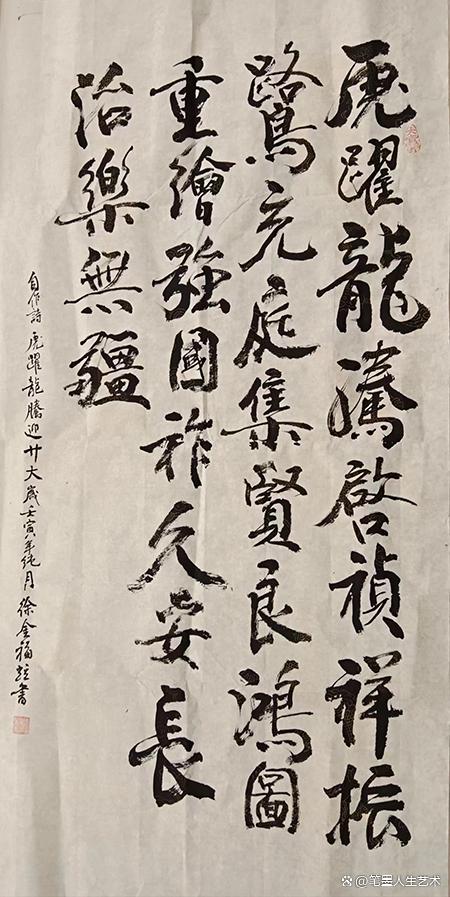 虎躍龍騰啓禎祥振
鷺充庭集賢良鴻圖
重繪強國祚久安長
治樂無疆
自作詩虎躍龍騰迎廿大歲壬寅年純月徐金福 書
@笔墨人生艺术